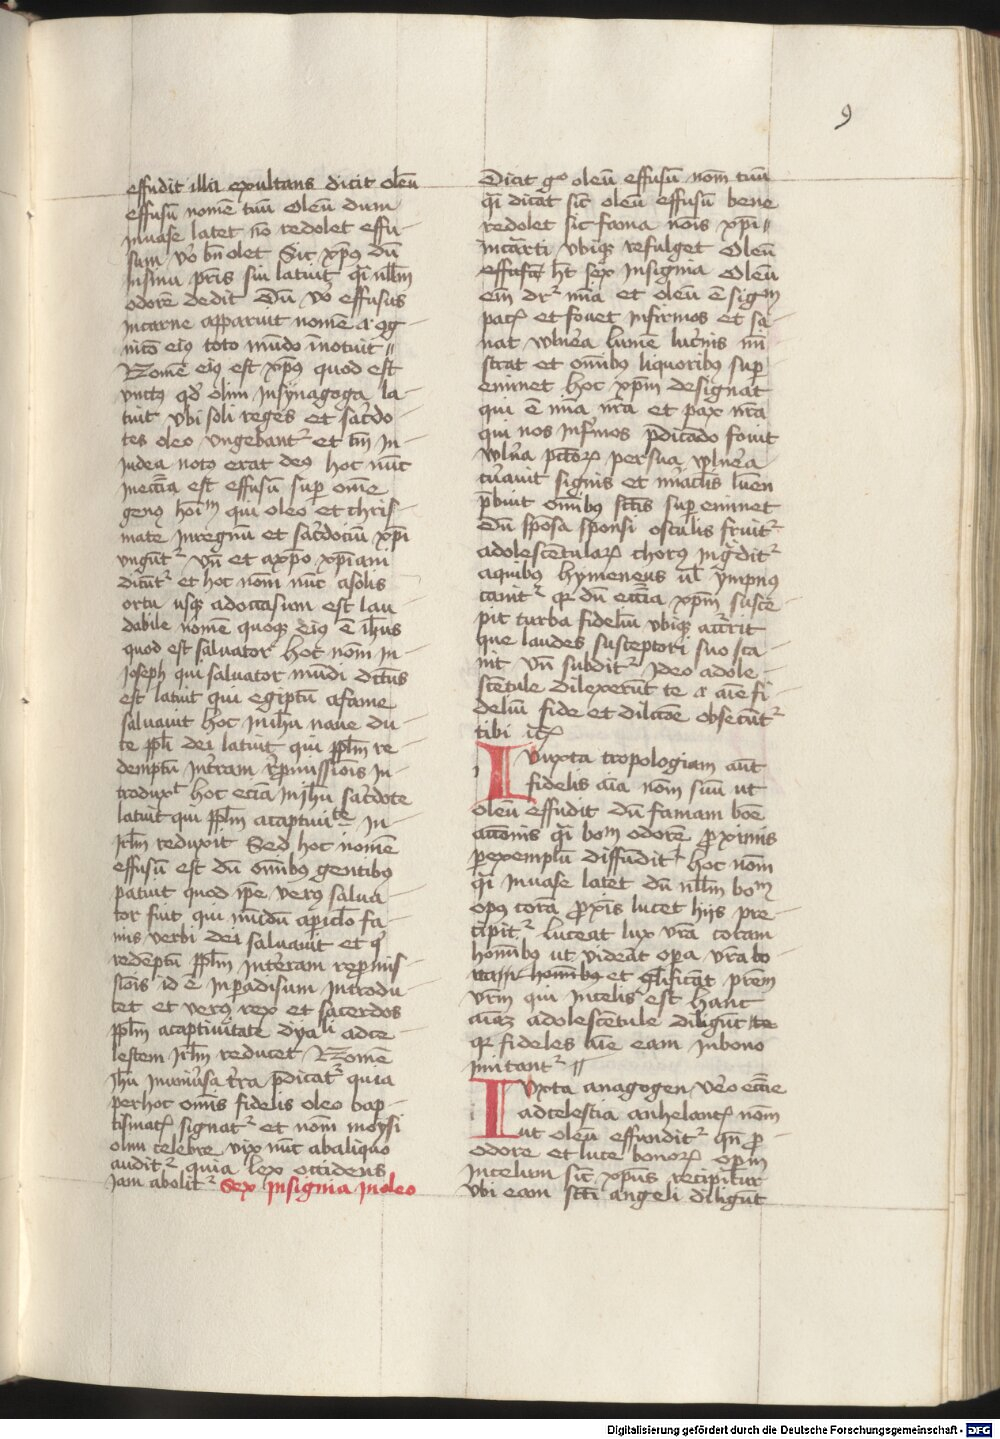 9
effudit illi exultans dicit oleū
effusū nomē tuū Oleū dum
inuase latet nō redolet effu-
sum vo bn̄ olet Sic xp̄s dū
insinu pr̄is sui latuit qi nll̄m
odorē dedit Dū vo effusus
incarne apparuit nomē a og-
nitō eiꝰ toto mūdo inotuit
Nomē eiꝰ est xp̄s quod est
vnctꝰ qd̓ olim insynagoga la-
tuit vbi soli reges et sac̓do
tes oleo vngebant᷑ et tm̄ in
iudea noto erat deꝰ hoc nūc
ineccīa est effusū sup̲ om̄e
genꝰ hoīm qui oleo et chris-
mate inregnū et sac̓dociū xp̄i
vngūt᷑ vn̄ et axp̄o xp̄iani
dicūt᷑ et hoc nom̄ nūc asolis
ortu usqꝫ adoccasum est lau
dabile nomē quoqꝫ eiꝰ ē ih̄us
quod est saluator hoc nom̄ in-
Joseph qui saluator mūdi dictus
est latuit qui egiptū afame
saluauit hoc inih̄u naue du-
ce pp̄li dei latuit qui pp̄lm re
demptū int̓ram rep̲missiōis in-
troduxt hoc eciā inih̄u sac̓dote
latuit qui pp̄lm acaptiuitate in-
Jrl̄m reduxit Sed hoc nomē
effusū est dū om̄ibꝰ gentibꝰ
patuit quod ip̄e verꝰ salua-
tor fuit qui mūdū ap̲iclo̓ fa-
mis verbi dei saluauit et q̓
redēptū pp̄lm interam rep̲mis-
siois id ē inp̲adisum introdu-
cet et verꝰ rex et sacerdos
pp̄lm acaptiuitate dyali adce
lestem Jrl̄m reducet Nomē
ih̄u inuniu̓sa t̓ra p̄dicat᷑ quia
perhoc om̄is fidelis oleo bap-
tismatꝭ signat᷑ et nom̄ moysi
olim celebre vix nūc abaliquo
audit᷑ quia lex occidens
iam abolit᷑ Sex insignia inoleo
Dicit gͦ oleū effusū nom̄ tuū
qi dicat sic̄ oleū effusū bene
redolet sic fama nōis xp̄i
incarn̄ti vbiqꝫ refulget Oleū
effusū ht̄ sex insignia Oleū
em̄ dr᷑ mīa et oleū ē signm̄
pacꝭ et fouet infirmos et sa-
nat vuln̓a lumē luc̓nis mi
strat et om̄ibꝰ liquoribꝰ sup̲
eminet hoc xp̄m designat
qui ē mīa nr̄a et pax nr̄a
qui nos inf̓mos p̄dicādo fouit
vuln̓a pctōꝝ persua vuln̓a
cu̓auit signis et mi̓aclis lumē
p̄buit om̄ibꝰ sctīs sup̲ eminet
Dū spōsa sponsi osculis fruit᷑
adolescētularꝝ chorꝰ ing̓dit᷑
aquibꝰ hymeneus ul̓ ympnꝰ
canit᷑ qꝛ dū eccīa xp̄m susce-
pit turba fideliū vbiqꝫ accrit
que laudes susceptori suo sta
nit vn̄ subdit᷑ Jdeo adole-
scētule dilexerūt te a aīe fi-
deliū fide et dilcōe obsecūt᷑
tibi icꝭ
Iuxta tropologiam aūt
fidelis aīa nom̄ suū ut
oleū effudit dū famam boē
accōnis qi bom̄ odorē p̲ximis
p̲exemplū diffūdit hoc nom̄
qi inuase latet dū nll̄m bom̄
opꝰ corā p̲xīs lucet hijs pre-
cipit᷑ luceat lux vr̄a coram
hom̄ibꝰ ut videāt opa vr̄a bo
na hom̄ibꝰ et gl̓ificāt prēm
vr̄m qui incelis est hanc
aīaꝫ adolescētule diligūt te
qꝛ fideles aīe eam inbono
imitant᷑
Iuxta anagogen vero eccīe
adcelestia anhelantꝭ nom̄
ut oleū effundit᷑ qn̄ p̲
odore et luce bonorꝝ opm̄
incelum sic̄ xp̄us recipitur
vbi eam sctī angeli diligūt
Digitalisierung gefördert durch die Deutsche Forschungsgemeinschaft - DFG